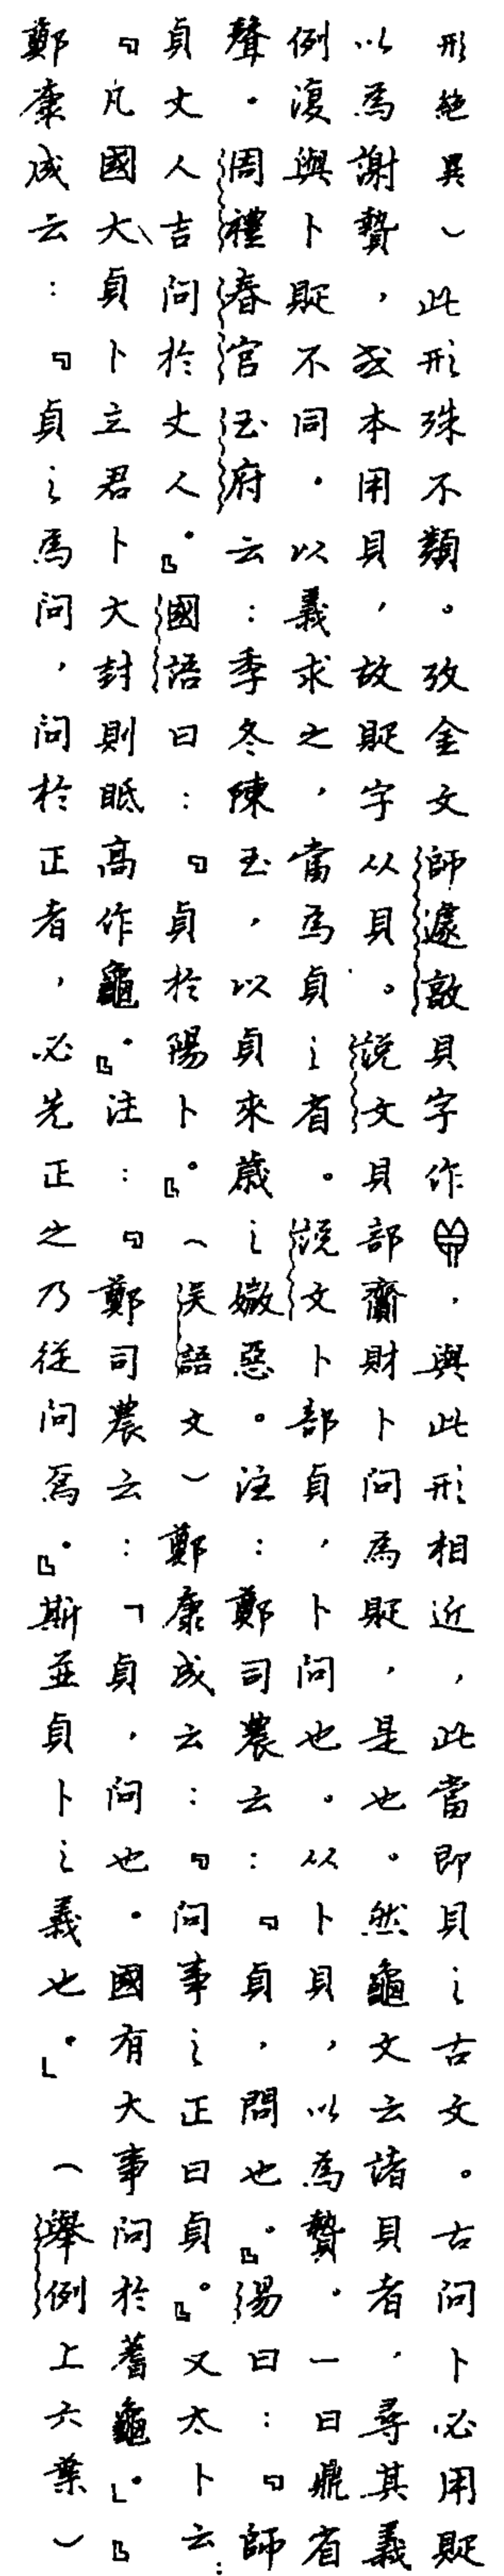 形絕異）此形殊不類。攷金文師遽敦貝字作，與此形相近，此當即貝之古文。古問卜必用
以為謝贄，或本用貝，故字从貝。說文貝部齎財卜問為，是也。然龜文云諸貝者，尋其義
例復與卜不同。以義求之，當為貞之省。說文卜部貞，卜問也。从卜貝，以為贄。一曰鼎省
聲。周禮春官玉府云：季冬陳玉，以貞來歲之媺惡。注：鄭司農云：『貞，問也。』易曰：『師
貞丈人吉問於丈人。』國語曰：『貞於陽卜。』（吳語文）鄭康成云：『問事之正曰貞。』又大卜云：
『凡國大、貞卜立君卜大封則眡高作龜。』注：『鄭司農云：「貞，問也。國有大事問於蓍龜。」』
鄭康成云：『貞之為問，問於正者，必先正之乃從問焉。』斯並貞卜之義也。」（舉例上六葉）